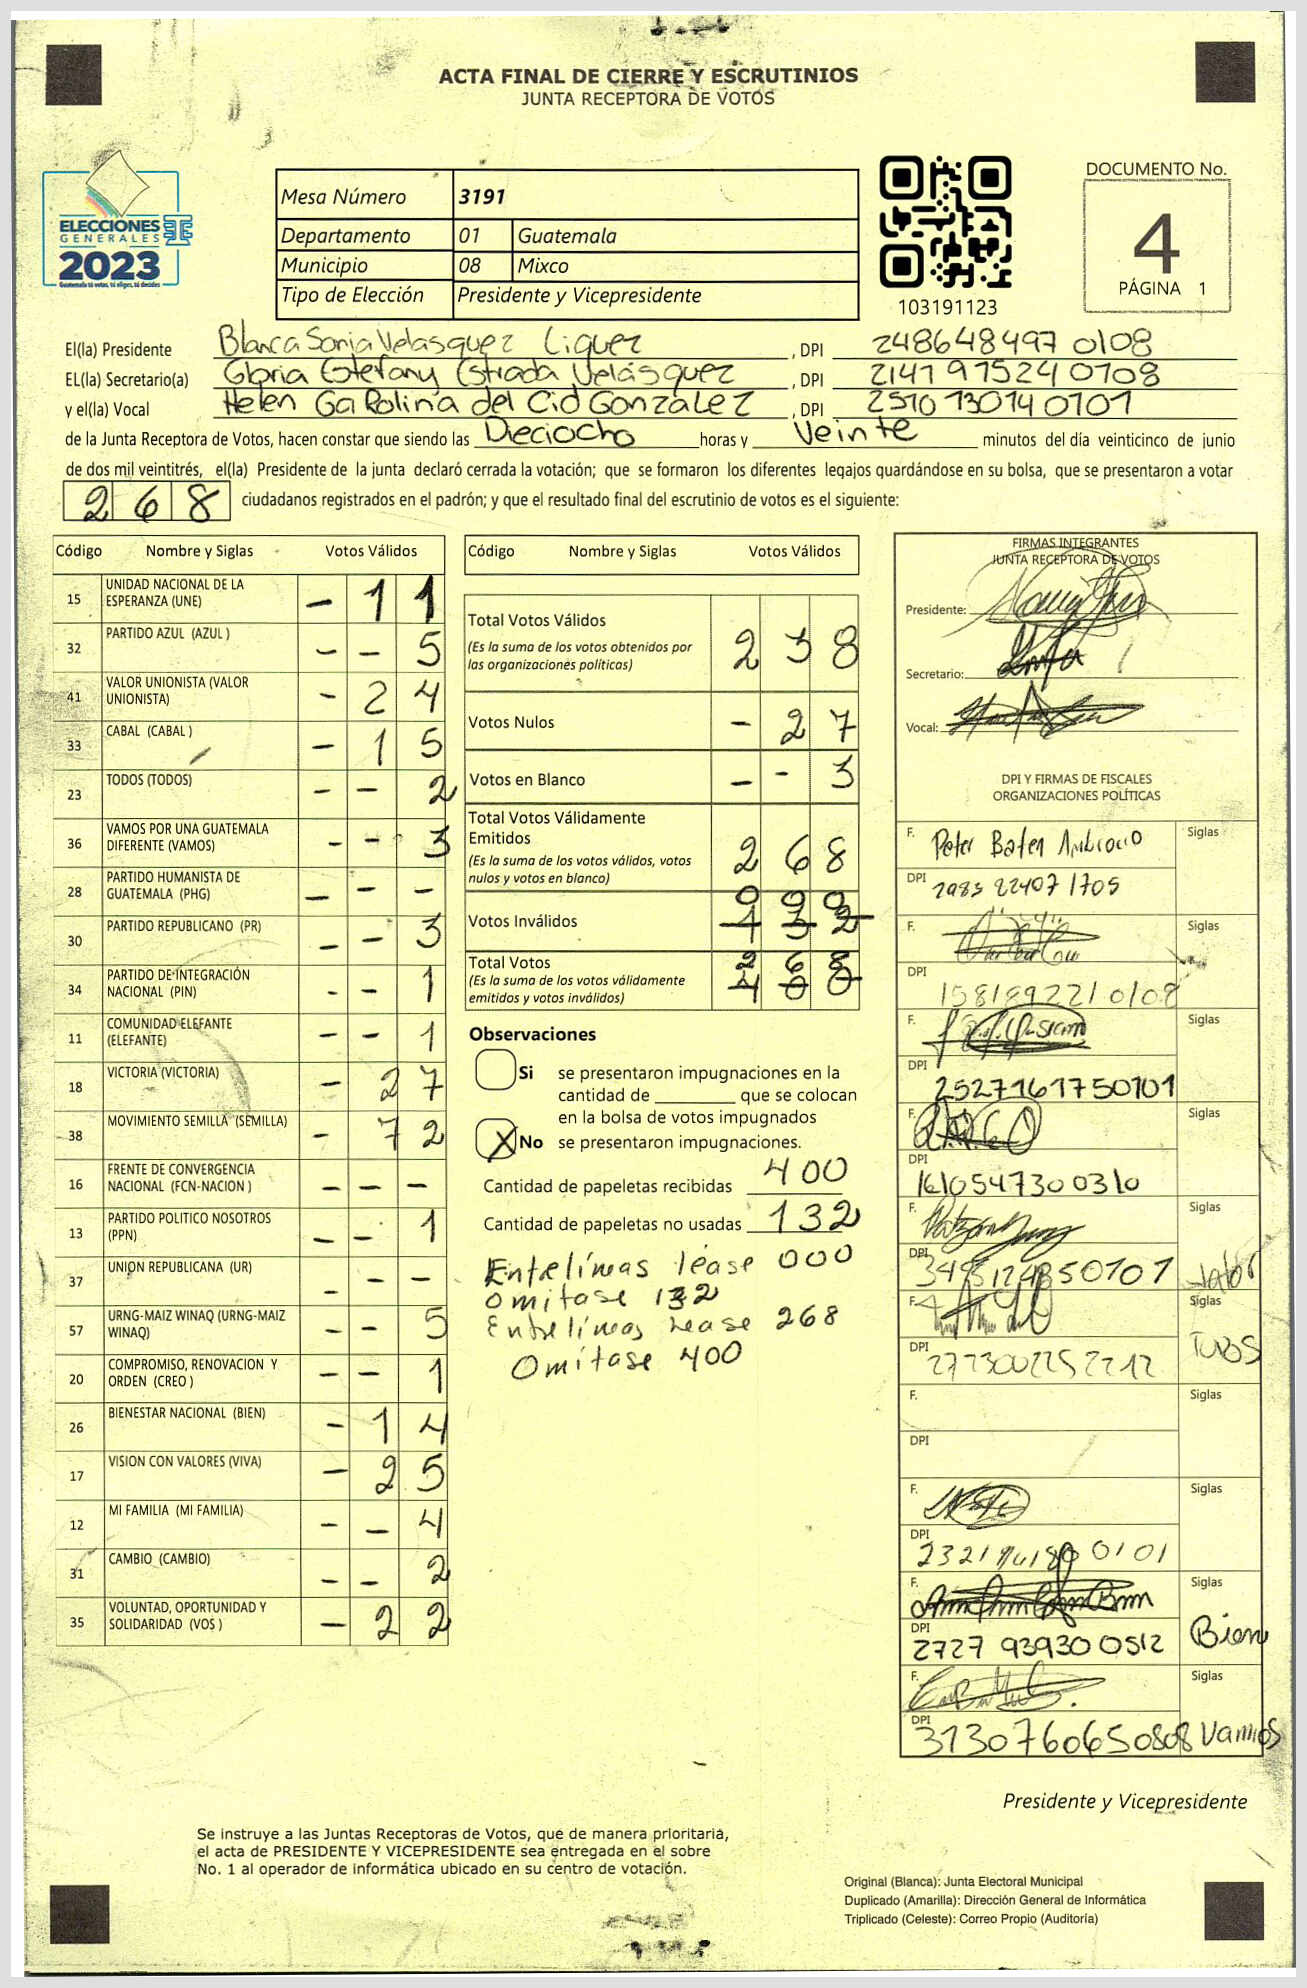 ACTA FINAL DE CIERRE Y ESCRUTINIOS
JUNTA RECEPTORA DE VOTOS
ELECCIONES
GENERALES
2023
Guatemala tú votas, tú eliges, tú decides
Mesa Número 3191
Departamento 01 Guatemala
Municipio 08 Mixco
Tipo de Elección Presidente y Vicepresidente
103191123
DOCUMENTO No.
4
PÁGINA 1
El(la) Presidente Blanca Sonia Velasquez Liquez, DPI 248648497 0108
EL(la) Secretario(a) Gloria Estefany Estrada Velásquez, DPI 2147975240108
y el(la) Vocal Helen GaRolina del Cid Gonzalez, DPI 2510130140101
de la Junta Receptora de Votos, hacen constar que siendo las Dieciocho horas y Veinte minutos del día veinticinco de junio
de dos mil veintitrés, el(la) Presidente de la junta declaró cerrada la votación; que se formaron los diferentes legajos guardándose en su bolsa, que se presentaron a votar
268 ciudadanos registrados en el padrón; y que el resultado final del escrutinio de votos es el siguiente:
Código Nombre y Siglas Votos Válidos
15 UNIDAD NACIONAL DE LA ESPERANZA (UNE) - 1 1
32 PARTIDO AZUL (AZUL ) - - 5
41 VALOR UNIONISTA (VALOR UNIONISTA) - 2 4
33 CABAL (CABAL ) - 1 5
23 TODOS (TODOS) - - 2
36 VAMOS POR UNA GUATEMALA DIFERENTE (VAMOS) - - 3
28 PARTIDO HUMANISTA DE GUATEMALA (PHG) - - -
30 PARTIDO REPUBLICANO (PR) - - 3
34 PARTIDO DE INTEGRACIÓN NACIONAL (PIN) - - 1
11 COMUNIDAD ELEFANTE (ELEFANTE) - - 1
18 VICTORIA (VICTORIA) - 2 7
38 MOVIMIENTO SEMILLA (SEMILLA) - 7 2
16 FRENTE DE CONVERGENCIA NACIONAL (FCN-NACION ) - - -
13 PARTIDO POLITICO NOSOTROS (PPN) - - 1
37 UNION REPUBLICANA (UR) - - -
57 URNG-MAIZ WINAQ (URNG-MAIZ WINAQ) - - 5
20 COMPROMISO, RENOVACION Y ORDEN (CREO ) - - 1
26 BIENESTAR NACIONAL (BIEN) - 1 4
17 VISION CON VALORES (VIVA) - 2 5
12 MI FAMILIA (MI FAMILIA) - - 4
31 CAMBIO (CAMBIO) - - 2
35 VOLUNTAD, OPORTUNIDAD Y SOLIDARIDAD (VOS ) - 2 2
Código Nombre y Siglas Votos Válidos
Total Votos Válidos 2 3 8
(Es la suma de los votos obtenidos por
las organizaciones políticas)
Votos Nulos - 2 7
Votos en Blanco - - 3
Total Votos Válidamente
Emitidos 2 6 8
(Es la suma de los votos válidos, votos
nulos y votos en blanco)
0 0 0
Votos Inválidos 1 3 2
Total Votos 2 6 8
(Es la suma de los votos válidamente
emitidos y votos inválidos) 4 0 0
Observaciones
Si se presentaron impugnaciones en la
cantidad de ________ que se colocan
en la bolsa de votos impugnados
X No se presentaron impugnaciones.
Cantidad de papeletas recibidas 400
Cantidad de papeletas no usadas 132
Entrelíneas léase 000
omitase 132
Entrelíneas Lease 268
Omítase 400
FIRMAS INTEGRANTES
JUNTA RECEPTORA DE VOTOS
Presidente:
Secretario:
Vocal:
DPI Y FIRMAS DE FISCALES
ORGANIZACIONES POLÍTICAS
F. Peter Baten Ambrocio Siglas
DPI 2985 22407 1705
F. Siglas
DPI 158189221 0108
F. Siglas
DPI 2527161750101
F. Siglas
DPI 1610547300310
F. Siglas
DPI Valor
F. Siglas
DPI TODOS
F. Siglas
DPI
F. Siglas
DPI
F. Siglas
DPI 2727 939300512 Bien
F. Siglas
DPI 3130760650808 Vamos
Presidente y Vicepresidente
Se instruye a las Juntas Receptoras de Votos, que de manera prioritaria,
el acta de PRESIDENTE Y VICEPRESIDENTE sea entregada en el sobre
No. 1 al operador de informática ubicado en su centro de votación.
Original (Blanca): Junta Electoral Municipal
Duplicado (Amarilla): Dirección General de Informática
Triplicado (Celeste): Correo Propio (Auditoría)